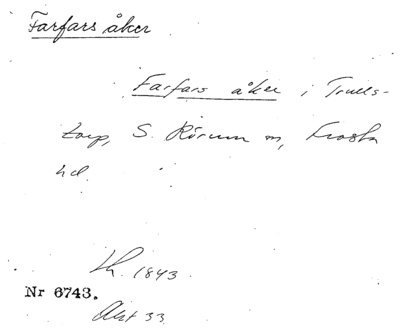 Farfars åker
Farfars åker i Trulls-
torp, S. Rörum sn, Frosta
hd.
Lh. 1843
Nr 6743.
Akt 33